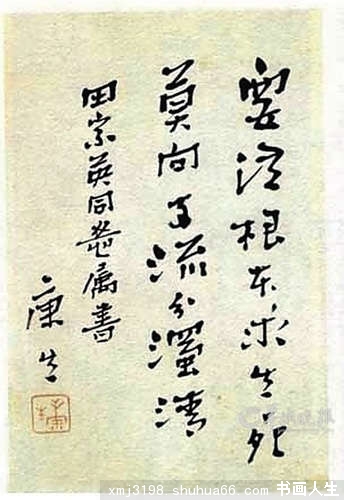 要從根本求生死
莫向支流分濁清
田家英同志属書
康生
康生
羊城晚报
xmj3198 shuhua66.com 书画人生